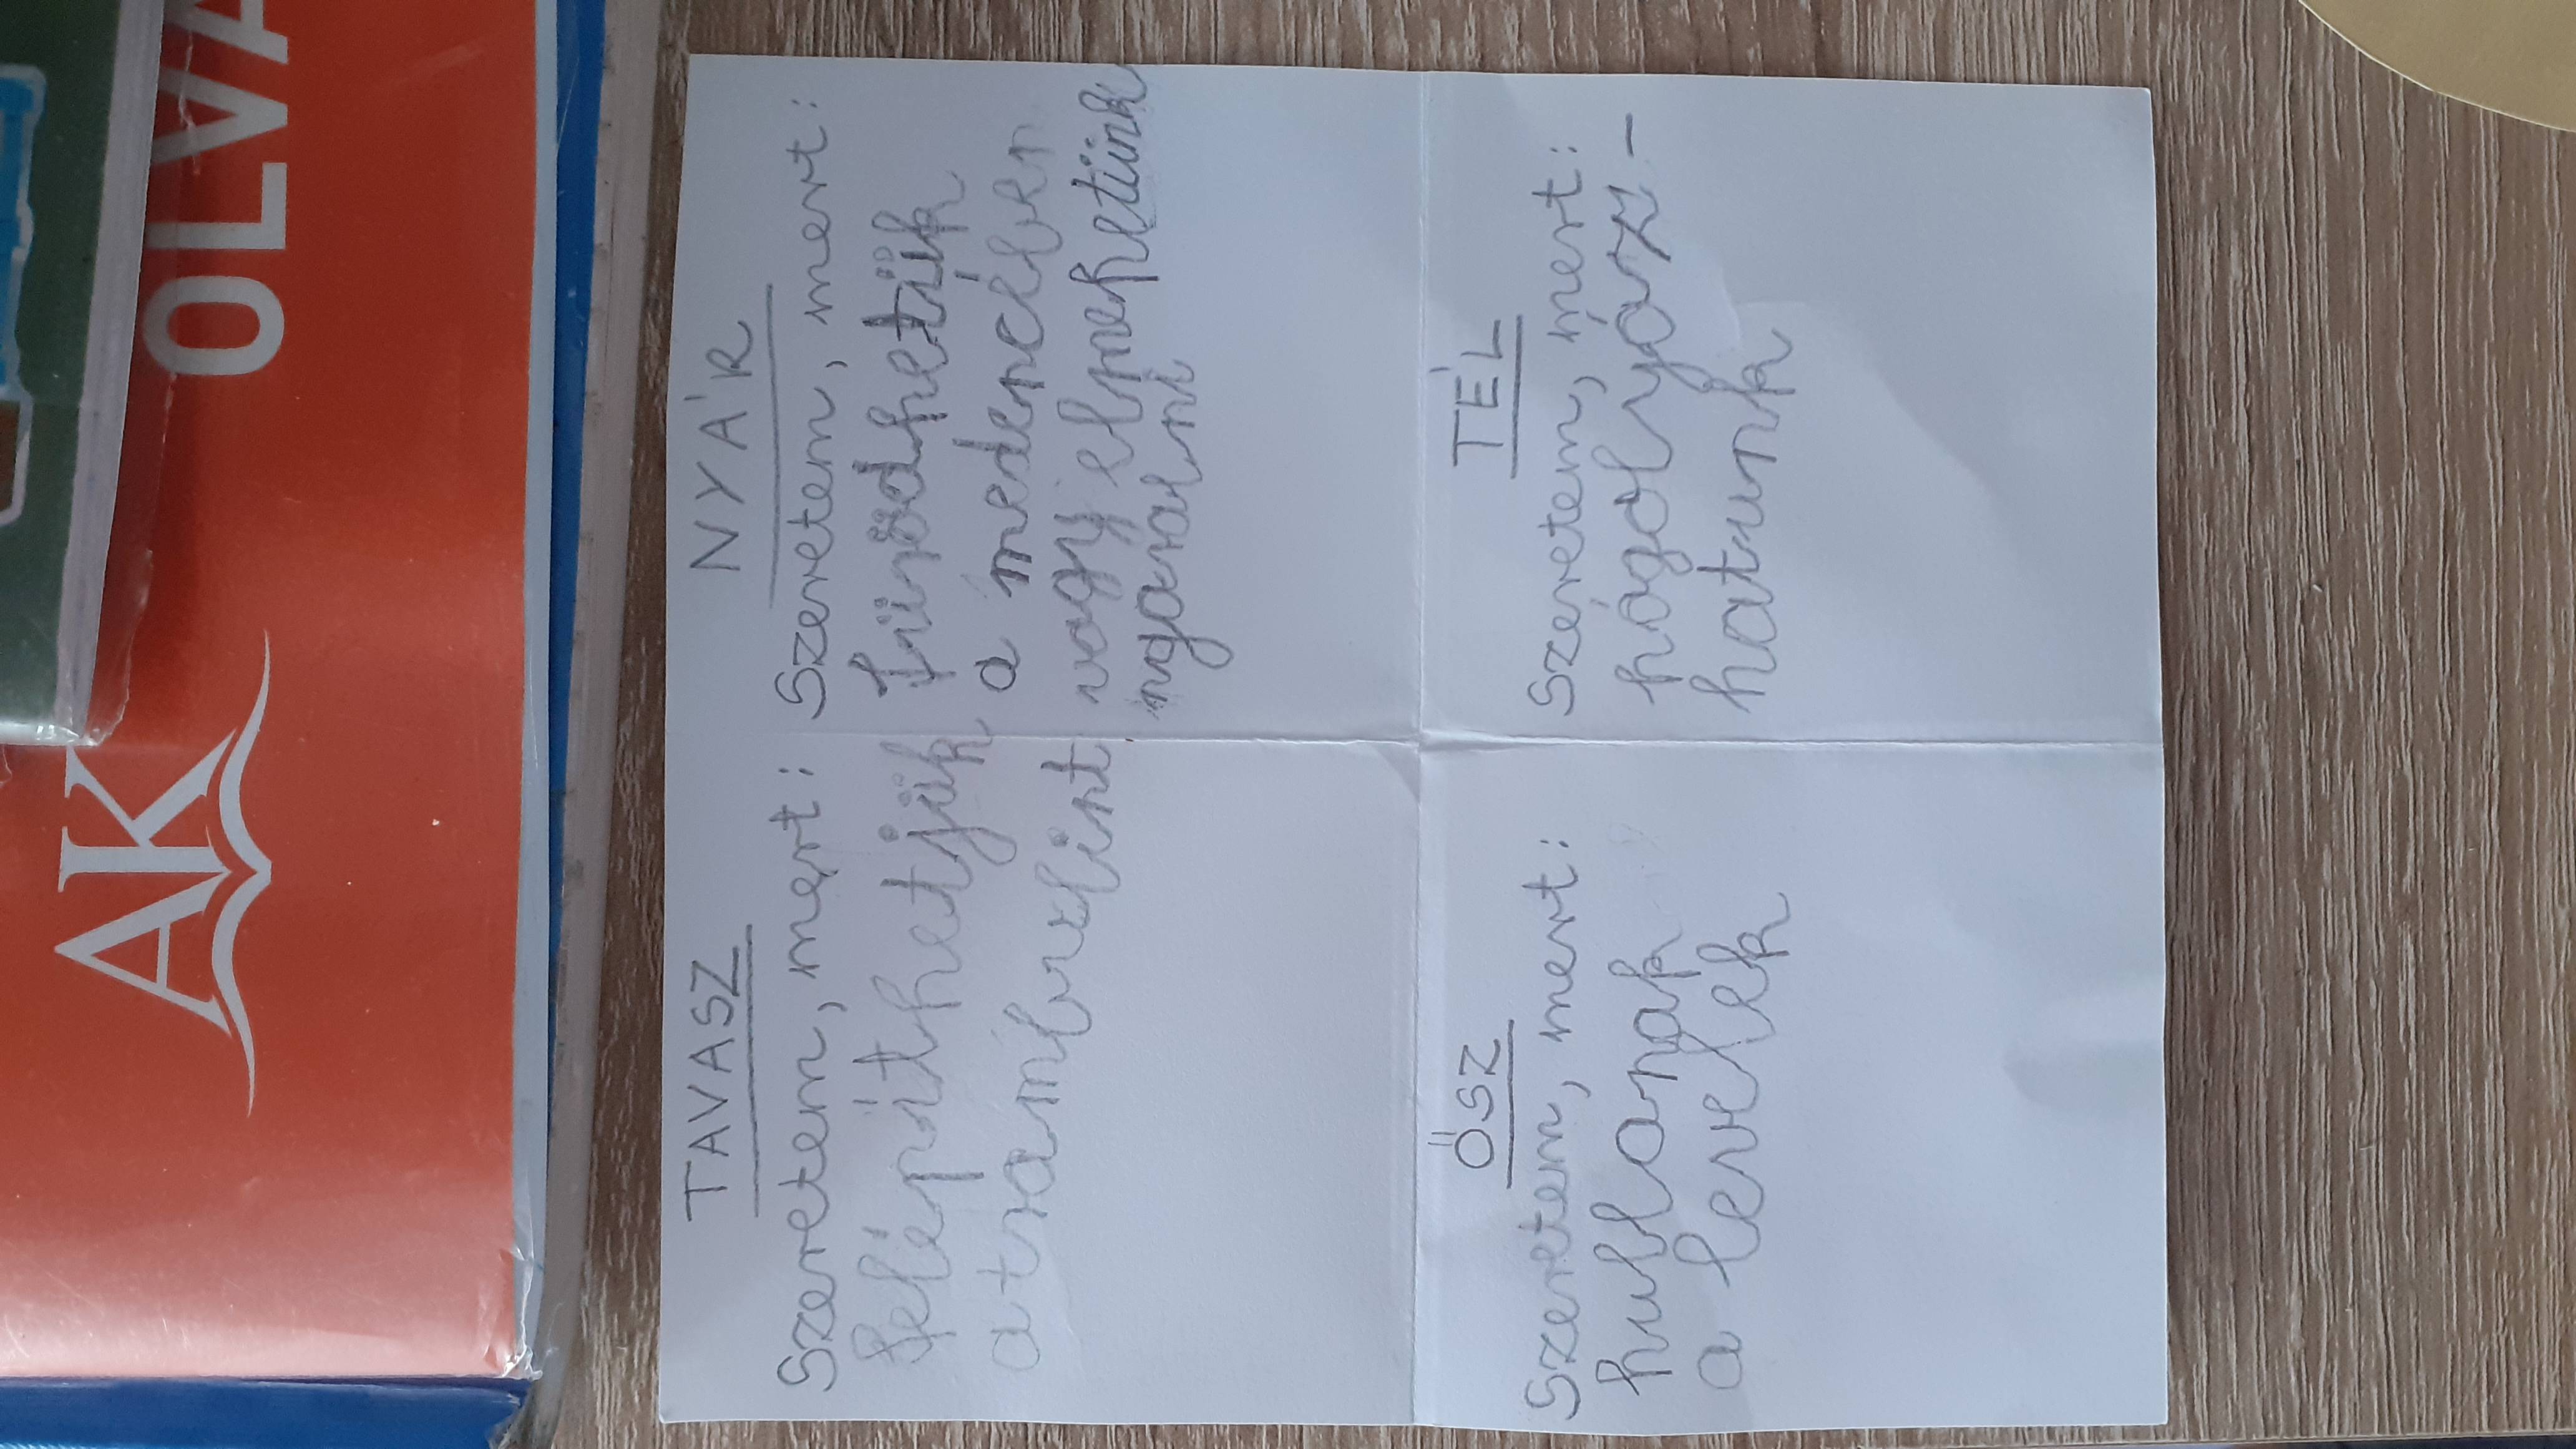 AK
OLVA
TAVASZ
Szeretem, mert:
felépíthetjük
a trambulint
NYÁR
Szeretem, mert:
fürödhetük
a medencében
vagy elmehetünk
nyaralni
ŐSZ
Szeretem, mert:
hullanak
a levelek
TÉL
Szeretem, mert:
hógolyóz-
hatunk